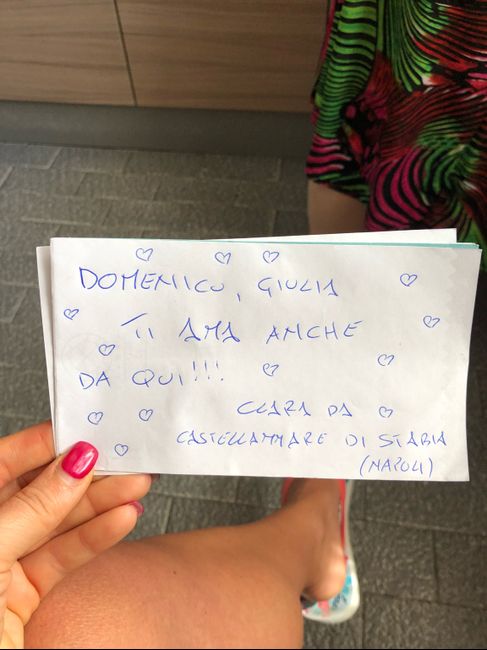 DOMENICO, GIULIA
TI AMA ANCHE
DA QUI!!!
CLARA DA
CASTELLAMMARE DI STABIA
(NAPOLI)